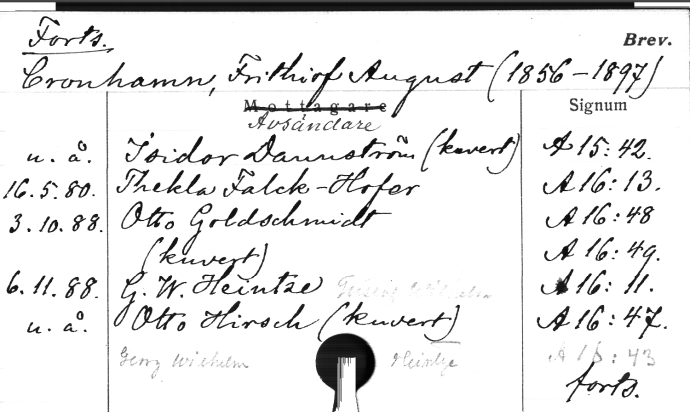 Forts.
Brev.
Cronhamn, Frithiof August (1856-1897)
Mottagare
Signum
Avsändare
u. å. Isidor Dannström (kuvert) A 15:42.
16.5.80. Thekla Falck-Hofer A 16:13.
3.10.88. Otto Goldschmidt A 16:48
(kuvert) A 16:49.
6.11.88. G. W. Heintze Wilhelm A 16:11.
u. å. Otto Hirsch (kuvert) A 16:47.
Georg Wilhelm Heintze A 16:43
forts.